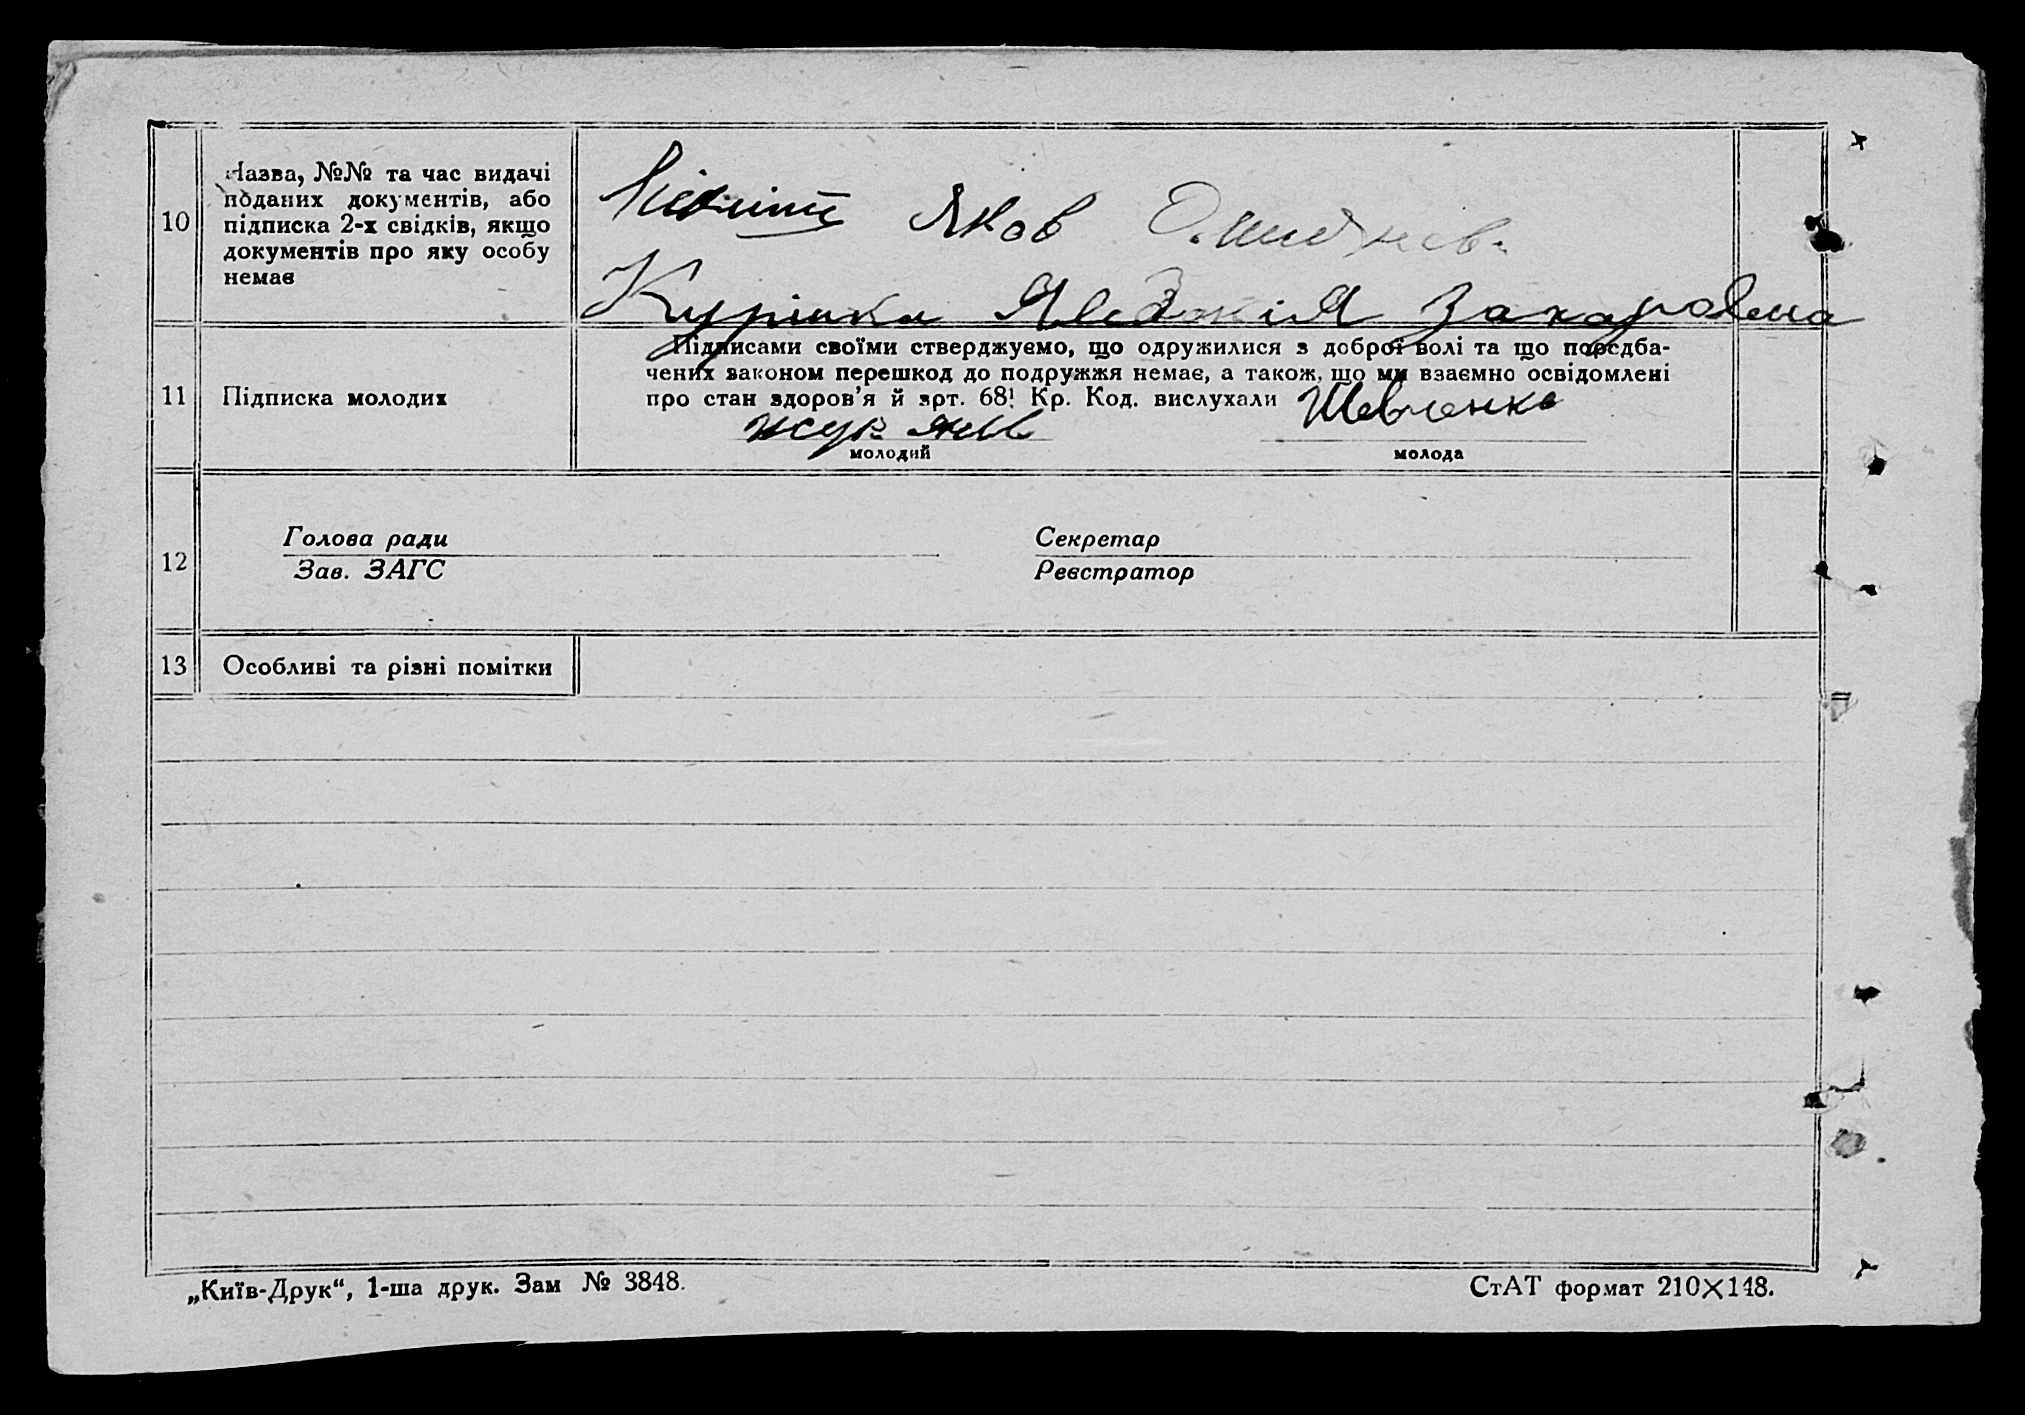 10
Назва, №№ та час видачі
поданих документів, або
підписка 2-х свідків, якщо
документів про яку особу
немає
Яков
Явдокія Захаровна
11
Підписка молодих
Підписами своїми стверджуємо, що одружилися з доброї волі та що передба-
чених законом перешкод до подружжя немає, а також, що ми взаємно освідомлені
про стан здоров’я й арт. 68¹ Кр. Код. вислухали
Шевченко
молодий
молода
12
Голова ради
Зав. ЗАГС
Секретар
Реєстратор
13
Особливі та різні помітки
„Київ-Друк“, 1-ша друк. Зам № 3848.
СтАТ формат 210×148.